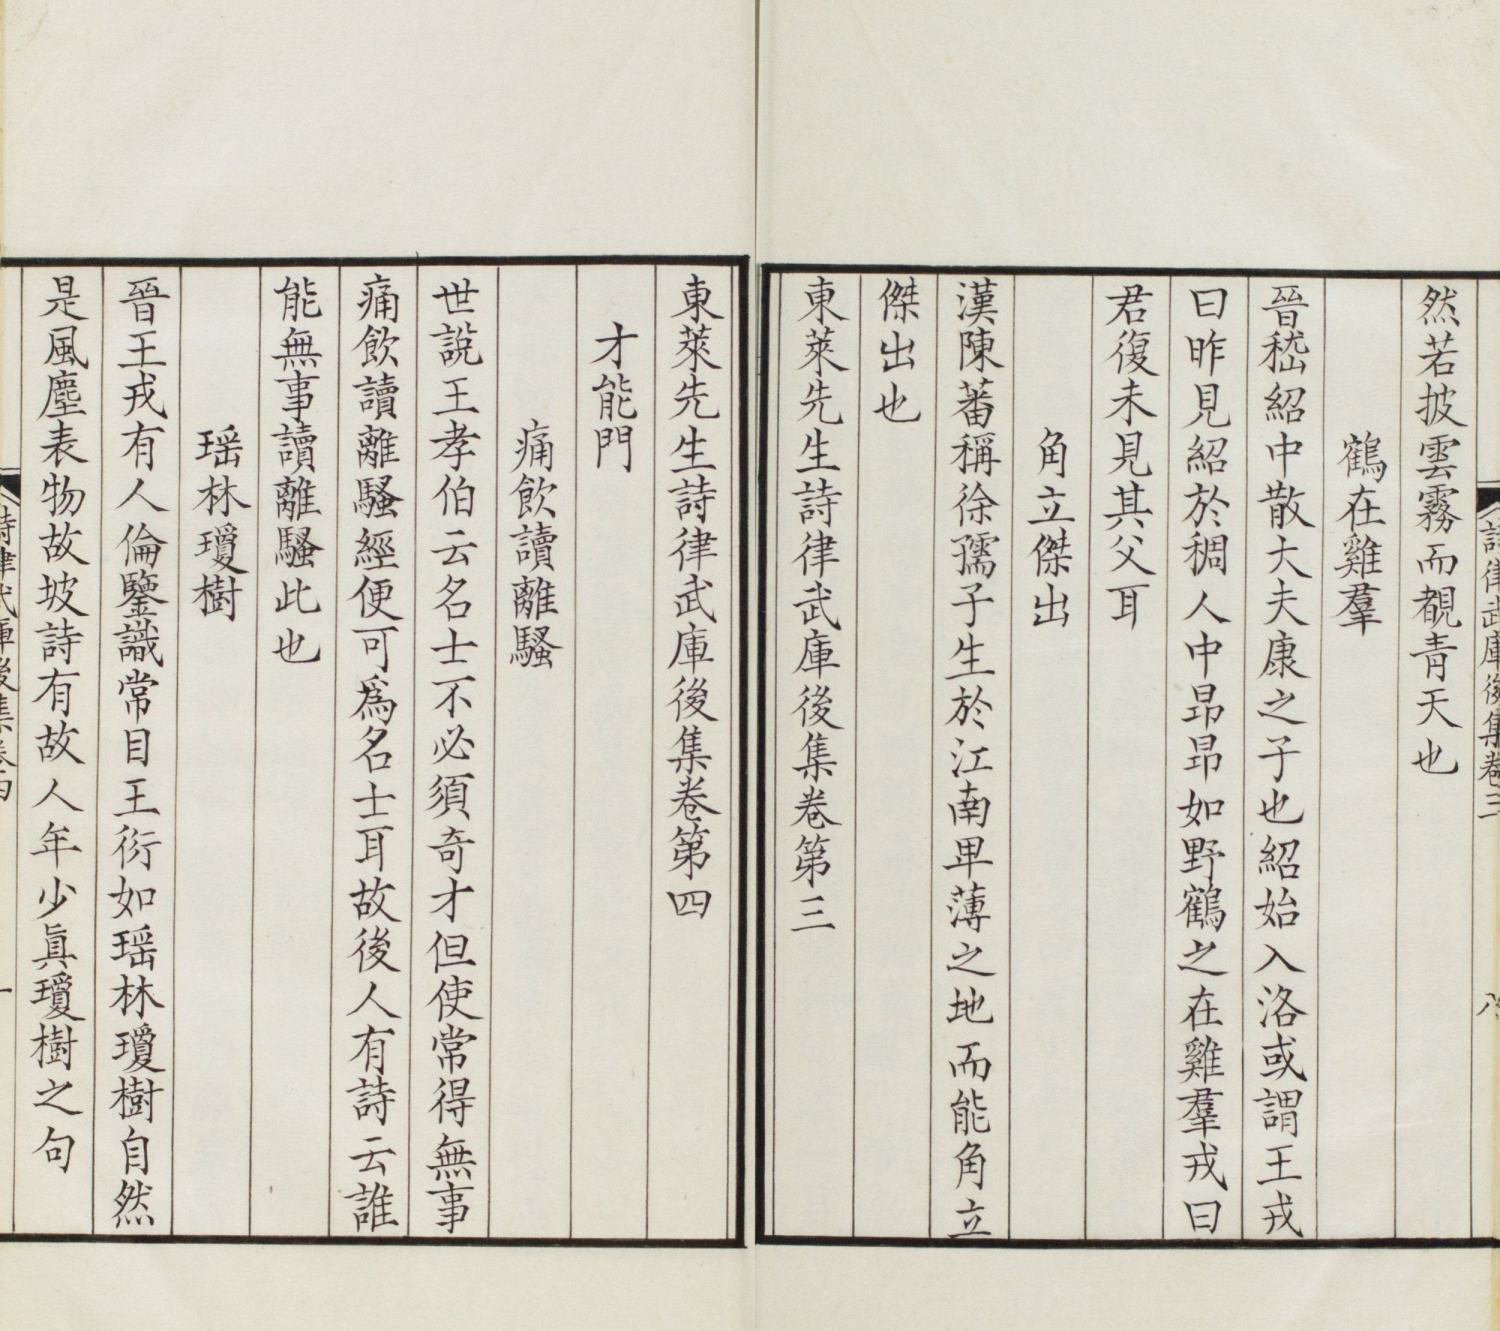 然若披雲霧而覩青天也
鶴在雞羣
晉嵇紹中散大夫康之子也紹始入洛或謂王戎
曰昨見紹於稠人中昂昂如野鶴之在雞羣戎曰
君復未見其父耳
角立傑出
漢陳蕃稱徐孺子生於江南卑薄之地而能角立
傑出也
東萊先生詩律武庫後集卷第三
東萊先生詩律武庫後集卷第四
才能門
痛飲讀離騷
世說王孝伯云名士不必須奇才但使常得無事
痛飲讀離騷經便可爲名士耳故後人有詩云誰
能無事讀離騷此也
瑶林瓊樹
晉王戎有人倫鑒識常目王衍如瑶林瓊樹自然
是風塵表物故坡詩有故人年少眞瓊樹之句